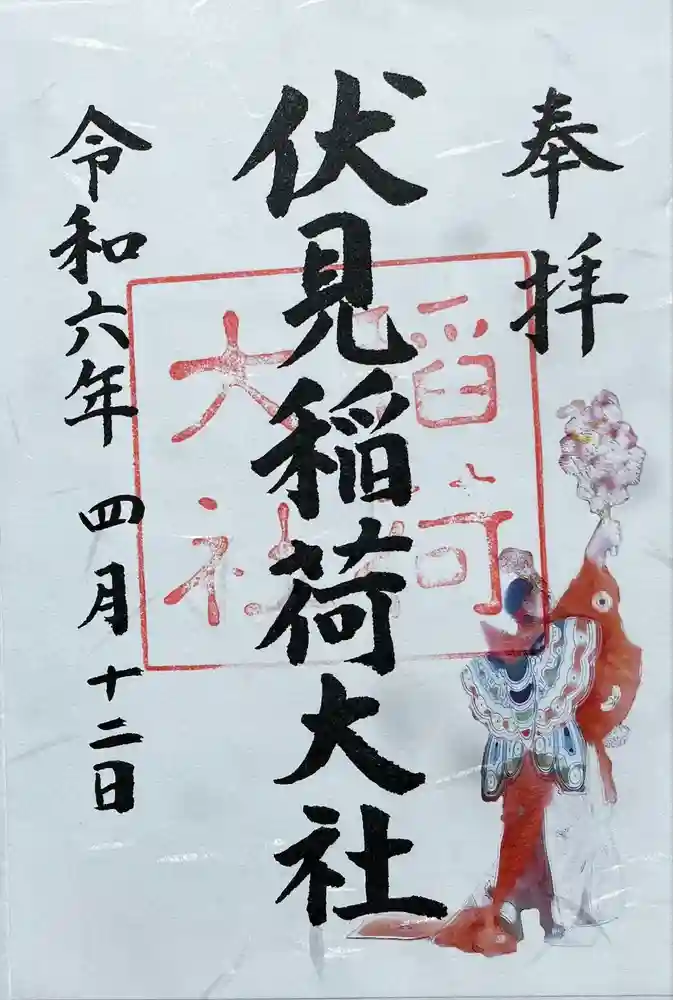 奉拝
伏見稲荷大社
稲荷
大社
令和六年 四月十二日